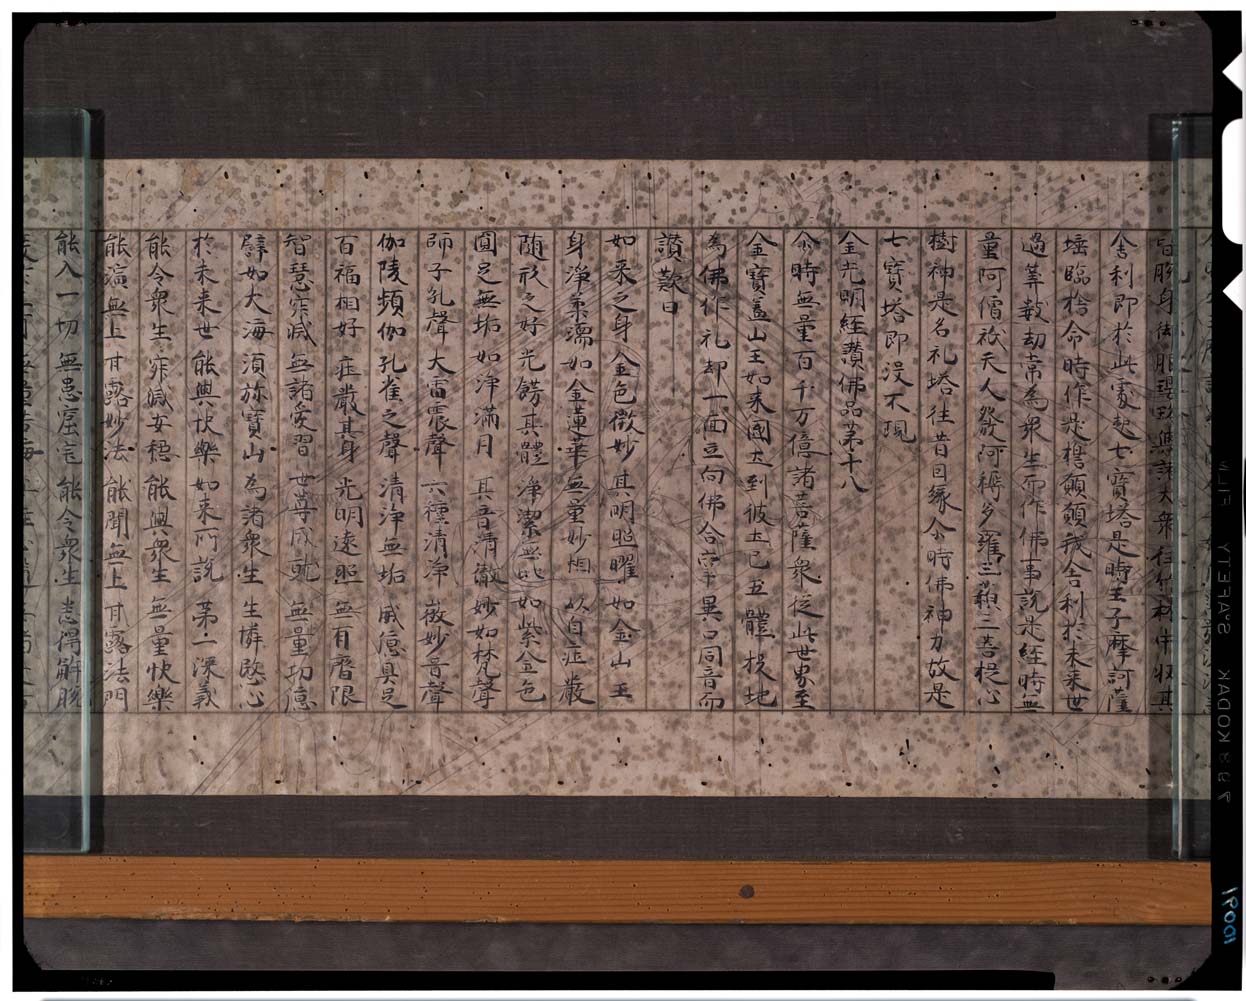 皆脫身御服瓔珞與諸大衆往竹林中收其
舍利即於此處起七寶塔是時王子摩訶薩
埵臨捨命時作是擔願願我舍利於未來世
過筭數劫常為衆生而作佛事說是經時無
量阿僧祇天人發阿耨多羅三藐三菩提心
樹神是名礼塔往昔因緣尒時佛神力故是
七寶塔即沒不現
金光明經讚佛品第十八
尒時無量百千万億諸菩薩衆從此世界至
金寶盖山王如來國土到彼土已五體投地
為佛作礼却一面立向佛合掌異口同音而
讚歎曰
如來之身 金色微妙 其明照曜 如金山王
身淨柔濡 如金蓮華 無量妙相 以自莊嚴
随形之好 光餝其體 淨潔無比 如紫金色
圓足無垢 如淨滿月 其音清徹 妙如梵聲
師子孔聲 大雷震聲 六種清淨 微妙音聲
伽陵頻伽 孔雀之聲 清淨無垢 威德具足
百福相好 莊嚴其身 光明遠照 無有齊限
智慧寂滅 無諸愛習 世尊成就 無量功德
譬如大海 須弥寶山 為諸衆生 生憐愍心
於未來世 能與快樂 如來所說 第一深義
能令衆生 寂滅安穩 能與衆生 無量快樂
能演無上 甘露妙法 能開無上 甘露法門
能入一切 無患窟宅 能令衆生 悉得解脫
KODAK SAFETY FILM